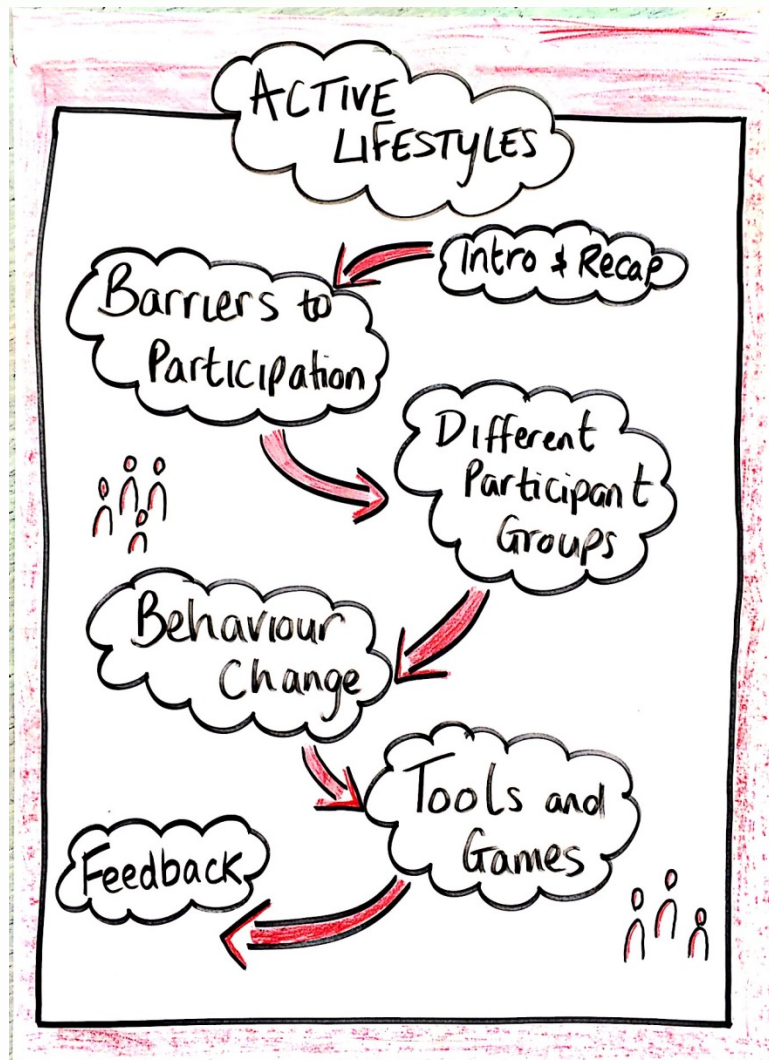 ACTIVE
LIFESTYLES
Intro & Recap
Barriers to
Participation
Different
Participant
Groups
Behaviour
Change
Tools and
Games
Feedback